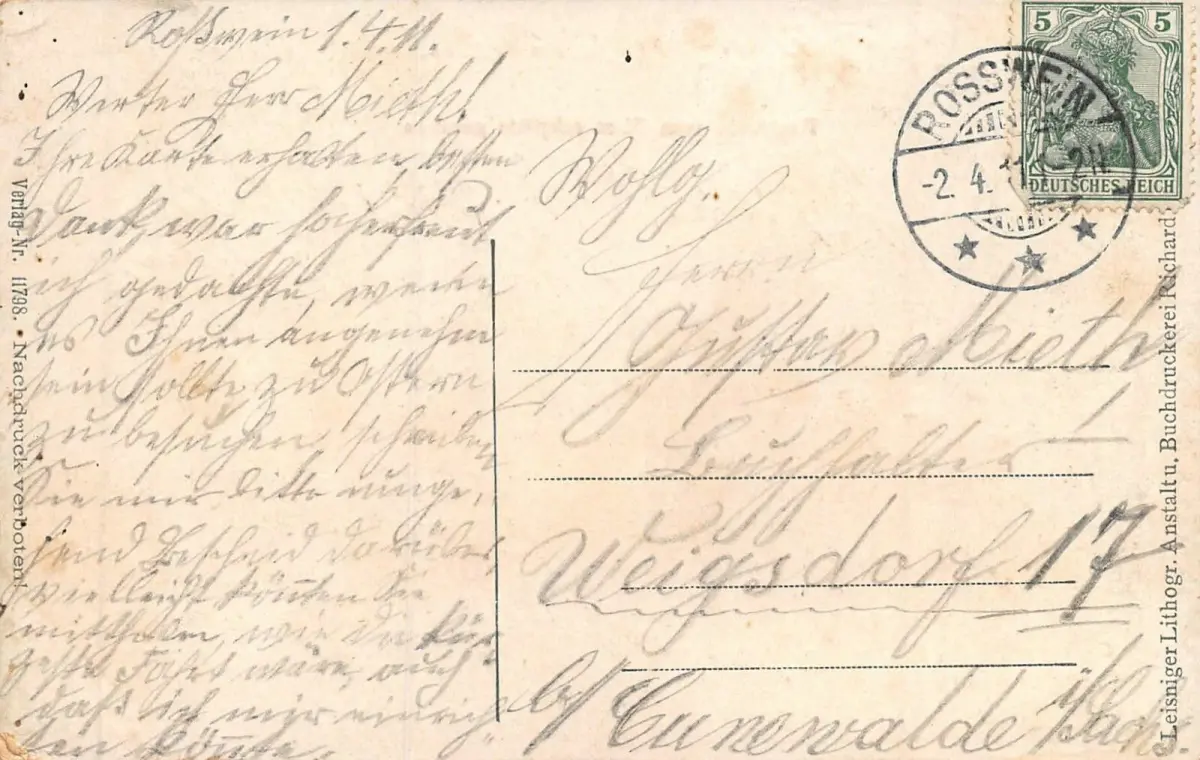 Roßwein 1.4.11.
Werter Herr Mieth!
Ihre Karte erhalten, besten
Dank, war so erfreut
ich gedachte, wenn
es Ihnen angenehm
sein sollte, zu Ostern
zu besuchen, schreiben
Sie mir bitte umge-
hend Bescheid darüber,
vielleicht könnten Sie
mittheilen, wie die kür-
zeste Fahrt wäre, auch
daß ich mir
könnte.
Wohlg.
Herrn
Gustav Mieth
Buchhalter
Weigsdorf 17
b/ Cunewalde i/Sachs.
5 5
DEUTSCHES REICH
ROSSWEIN
-2. 4. 11
Verlag-Nr. 11798. • Nachdruck verboten!
Leisniger Lithogr. Anstalt u. Buchdruckerei Richard